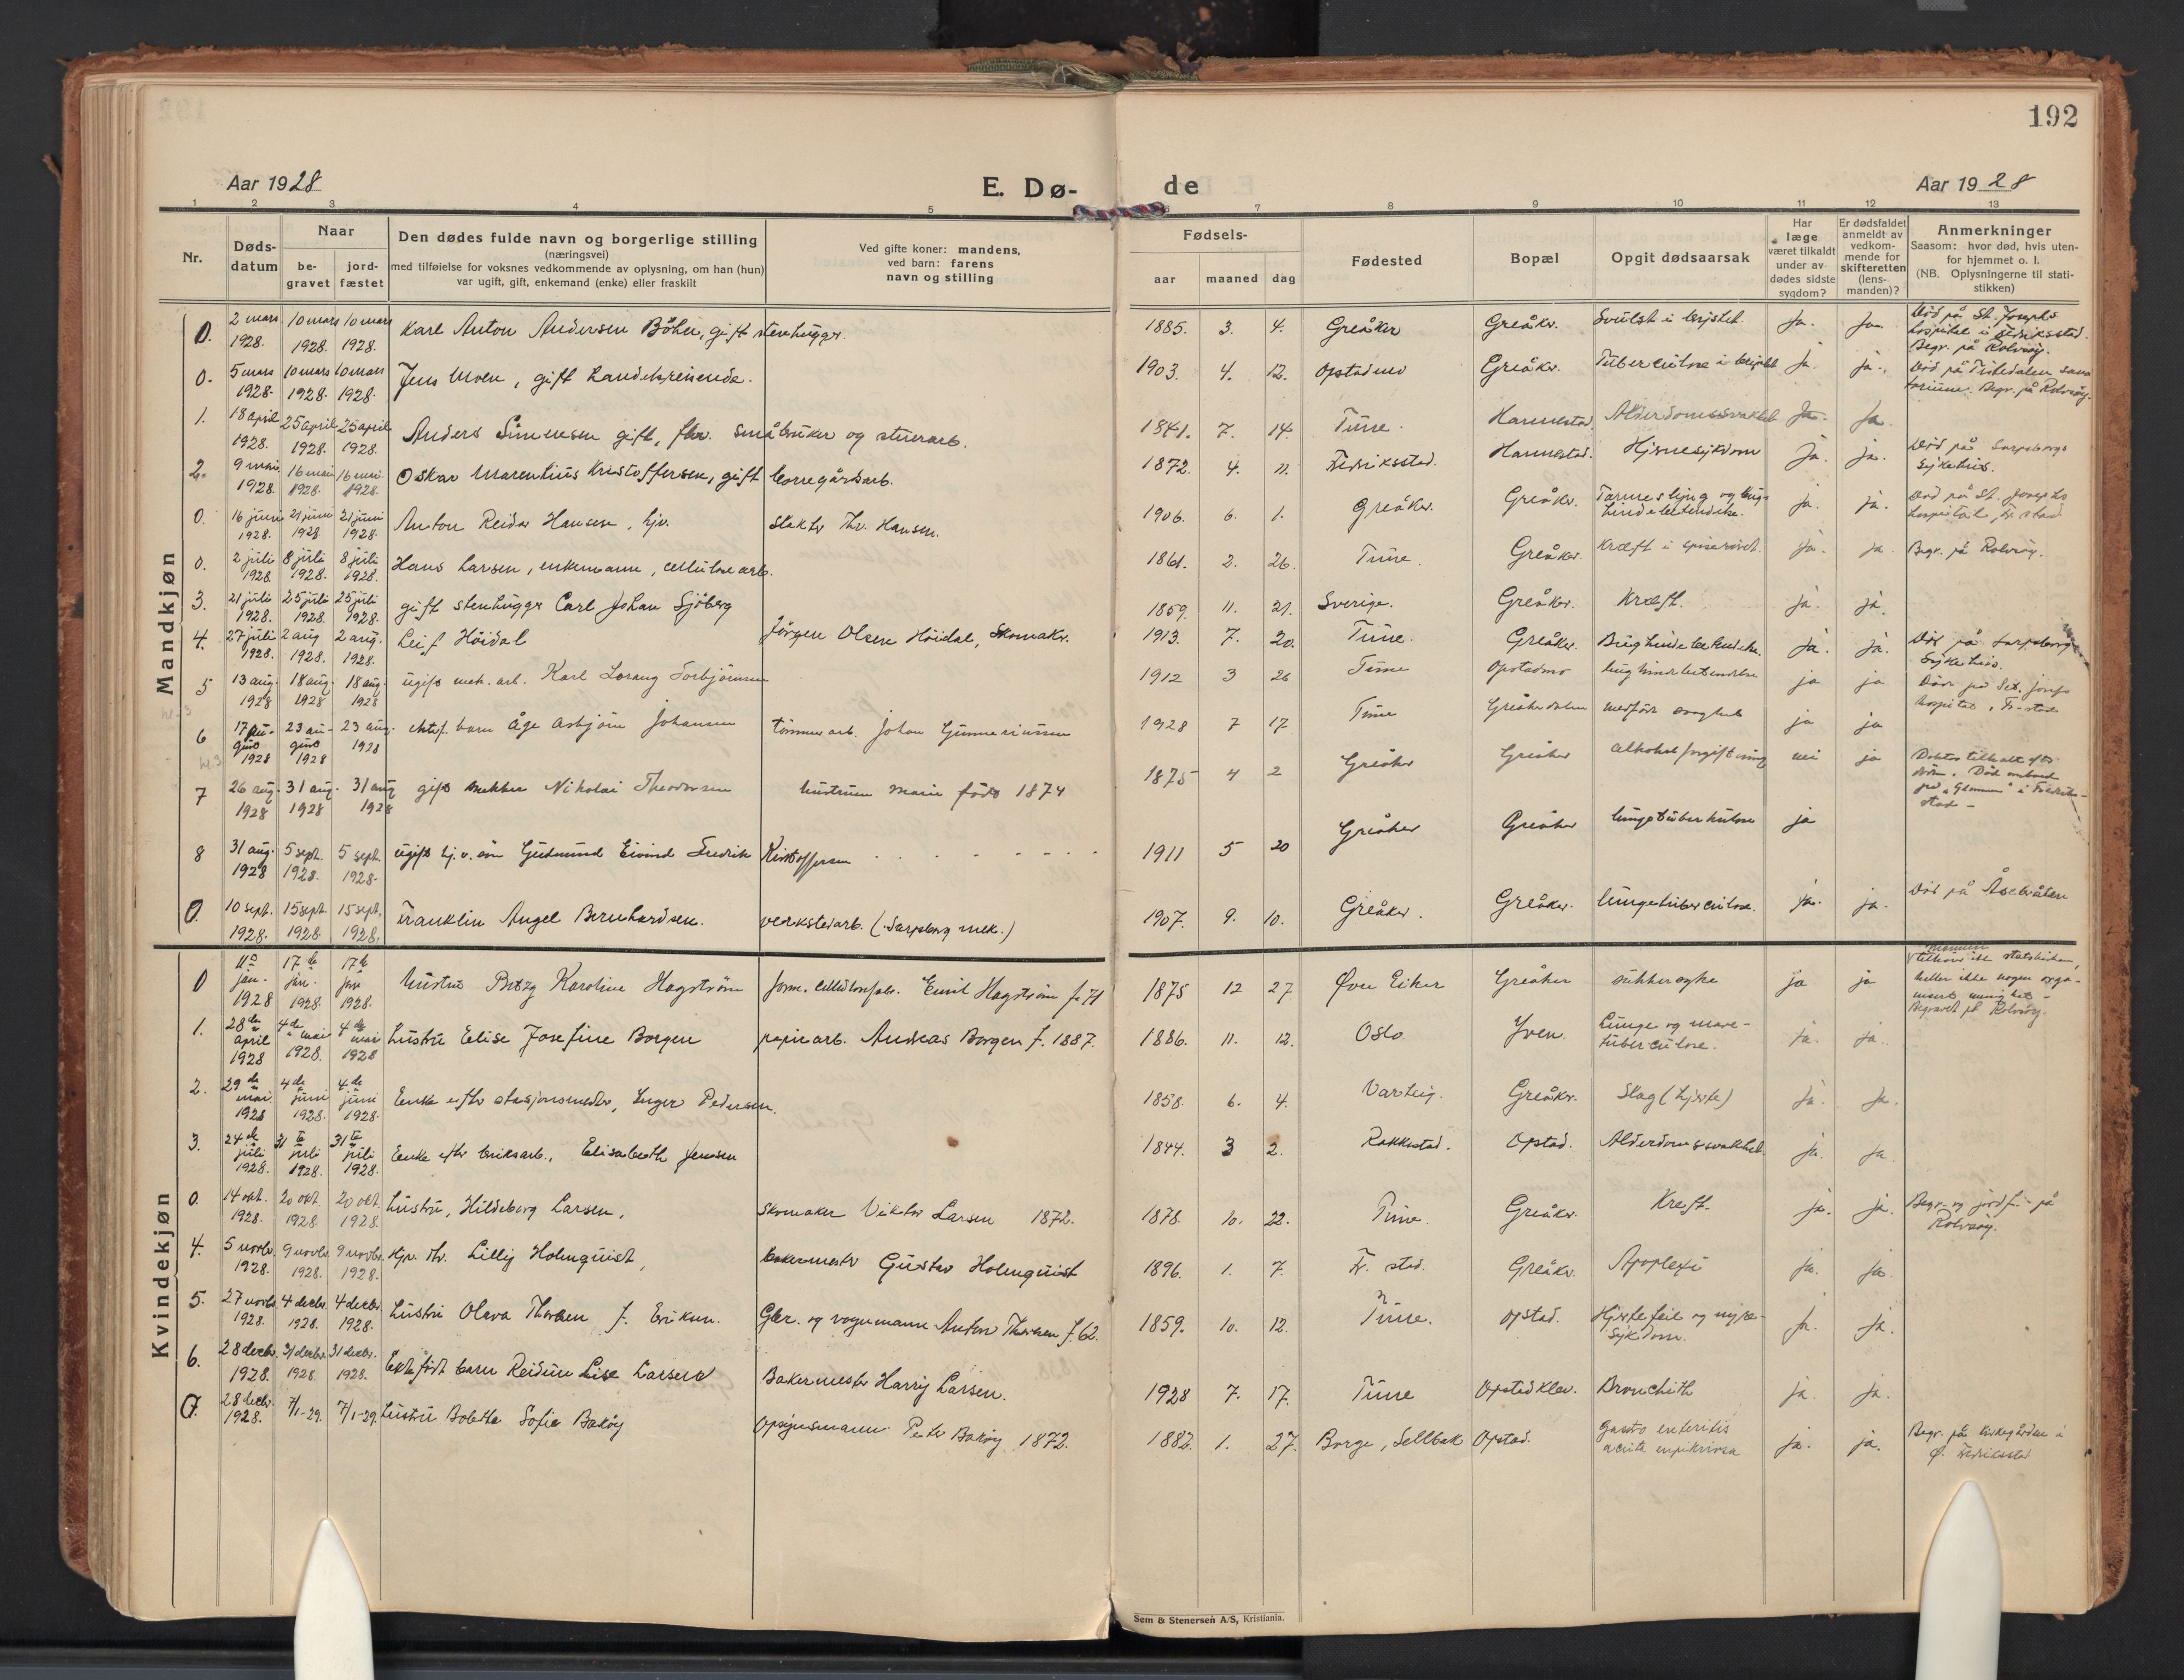 192
Aar 1928
E. Dø-
de
Aar 1928
1 2 3 4 5 6 7 8 9 10 11 12 13
Nr.
Døds-
datum
Naar
be-
gravet
jord-
fæstet
Den dødes fulde navn og borgerlige stilling
(næringsvei)
med tilføielse for voksnes vedkommende av oplysning, om han (hun)
var ugift, gift, enkemand (enke) eller fraskilt
Ved gifte koner: mandens,
ved barn: farens
navn og stilling
Fødsels-
aar maaned dag
Fødested
Bopæl
Opgit dødsaarsak
Har
læge
været tilkaldt
under av-
dødes sidste
sygdom?
Er dødsfaldet
anmeldt av
vedkom-
mende for
skifteretten
(lens-
manden)?
Anmerkninger
Saasom: hvor død, hvis uten-
for hjemmet o. l.
(NB. Oplysningerne til stati-
stikken)
Mandkjøn
0. 2 mars 1928. 10 mars 1928. 10 mars 1928. Karl Anton Andersen Böhn, gift stenhugger. 1885. 3. 4. Greåker Greåker. Svulst i brystet. Ja. Ja.
Död på St. Josephs
hospital i Fredriksstad.
Begr. på Rolvsöy.
0. 5 mars 1928. 10 mars 1928. 10 mars 1928. Jens Moen, gift handelsreisende. 1903. 4. 12. Opstadmo Greåker. Tuberculose i Ja. ja.
Död på Tistedalen sana
torium. Begr. på Rolvsöy.
1. 18 april 1928. 25 april 1928. 25 april 1928. Anders Simensen gift, fhv. småbruker og stuerarb. 1841. 7. 14. Tune. Hannestad. Alderdomssvakhet Ja. Ja.
2. 9 mai 1928. 16 mai 1928. 16 mai 1928. Oskar Marentius Kristoffersen, gift borregårdsarb. 1872. 4. 11. Fredriksstad. Hannestad. Hjernesykdom Ja. Ja.
Död på Sarpsborgs
Sykehus.
0. 16 juni 1928. 21 juni 1928 21 juni 1928. Anton Reidar Hansen, hjv. Slakter Thv. Hansen. 1906. 6. 1. Greåker. Greåker. Tarmeslyng og bug-
hindebetendelse. ja. ja.
Död på St. Josephs
hospital, Fr.stad
0. 2 juli 1928 8 juli 1928. 8 juli 1928. Hans Larsen, enkemann, cellulosearb. 1861. 2. 26. Tune. Greåker. Kræft i spiserøret. Ja. ja Begr. på Rolvsöy.
3. 21 juli 1928. 25 juli 1928. 25 juli 1928. gift stenhugger Carl Johan Sjöberg 1859. 11. 21. Sverige. Greåker. Kræft. ja. ja.
4. 27 juli 1928. 2 aug 1928. 2 aug. 1928. Leif Höidal Jörgen Olsen Höidal, Skomaker. 1913. 7. 20. Tune. Greåker. Bughindebetendelse. Ja. Ja.
Död på Sarpsborg
Sykehus.
5 13 aug. 1928 18 aug. 1928 18 aug. 1928 ugift mek. arb. Karl Lorang Torbjörnsen 1912 3 26 Tune Opstadmo bughindebetendelse ja ja
Döde på Sct. Josefs
hospital, Fr-stad
6 17 au-
gust
1928 23 au-
gust
1928 23 aug. 1928 ektef. barn Åge Asbjörn Johansen tömmerarb. Johan Gunneriussen 1928 7 17 Tune Greåkerdalen medfödt svaghet ja ja
7 26 aug. 1928 31 aug. 1928 31 aug 1928 gift Nikolai Theodorsen hustrue Marie född 1874 1875 4 2 Greåker Greåker alkoholforgiftning nei ja
Doktor tilkalt efter
död. Död ombord
på "Glommen" i Fredrik-
stad -
8 31 aug. 1928 5 sept. 1928. 5 sept. 1928. ugift hj. v. sön Gudmund Eivind Fredrik Kristoffersen 1911 5 20 Greåker Greåker lungetuberkulose ja
0. 10 sept. 1928. 15 sept. 1928 15 sept. 1928. Franklin Angel Bernhardsen. verkstedarb. (Sarpsborg mek.) 1907. 9. 10. Greåker. Greåker. lungetuberculose. ja. ja. Död på Åsebråten
Kvindekjøn
0 11te jan. 1928 17de jan. 1928 17de jan 1928. hustru Karoline Hagström form. cellulosefabr. Emil Hagström f. 71 1875 12 27 Øvre Eiker Greåker sukkersyke ja ja
mannen
tilhörer ikke statskirken,
heller ikke nogen orga-
nisert menighet -
Begravet på Rolvsöy.
1. 28de april 1928 4de mai 1928. 4de mai 1928 hustru Elise Josefine Borgen papirarb. Andreas Borgen f. 1887. 1886. 11. 12. Oslo Yven. Lunge og mave-
tuberculose. ja. ja.
2. 29de mai 1928 4de juni 1928. 4de juni 1928. Enke efter stasjonsmester, Inger Pedersen. 1858. 6. 4. Varteig. Greåker. Slag (hjerte) ja. Ja.
3. 24de juli 1928. 31te juli 1928. 31te juli 1928. Enke efter bruksarb., Elisabeth Jensen 1844. 3 2. Rakkestad. Opstad. Alderdomssvakhet. ja. ja
0. 14 okt. 1928. 20 okt. 1928. 20 okt. 1928. hustru, Hildeborg Larsen, Skomaker Viktor Larsen 1872. 1878. 10. 22. Tune. Greåker. Kreft. ja. ja.
Begr. og jordf. på
Rolvsöy.
4. 5 novbr. 1928. 9 novbr. 1928. 9 novbr. 1928. Hjv. dtr. Lilly Holmquist, bakermester Gustav Holmquist 1896. 1. 7. Fr. stad. Greåker. Apoplexi ja. ja.
5. 27 novbr. 1928. 4 decbr. 1928. 4 decbr. 1928. hustru Olava Thoresen f. Eriksen. Gbr. og vognmann Anton Thoresen f. 62. 1859. 10. 12. Tune. opstad. Hjertefeil og nyre-
sykdom. ja. ja.
6. 28 decbr. 1928. 31 decbr. 1928. 31 decbr. 1928. Ektefödt barn Reidun Lise Larsen Bakermester Harry Larsen. 1928 7. 17. Tune Opstadklev. Bronchith ja. ja.
0. 28 decbr. 1928. 7/1-29. 7/1-29. hustru Bolette Sofie Baköy Opsynsmann Peter Baköy 1872. 1882. 1. 27. Borge, Sellbak Opstad. Gastro enteritis
acuta ja. ja.
Begr. på kirkegården i
Ø. Fredriksstad
Sem & Stenersen A/S, Kristiania.